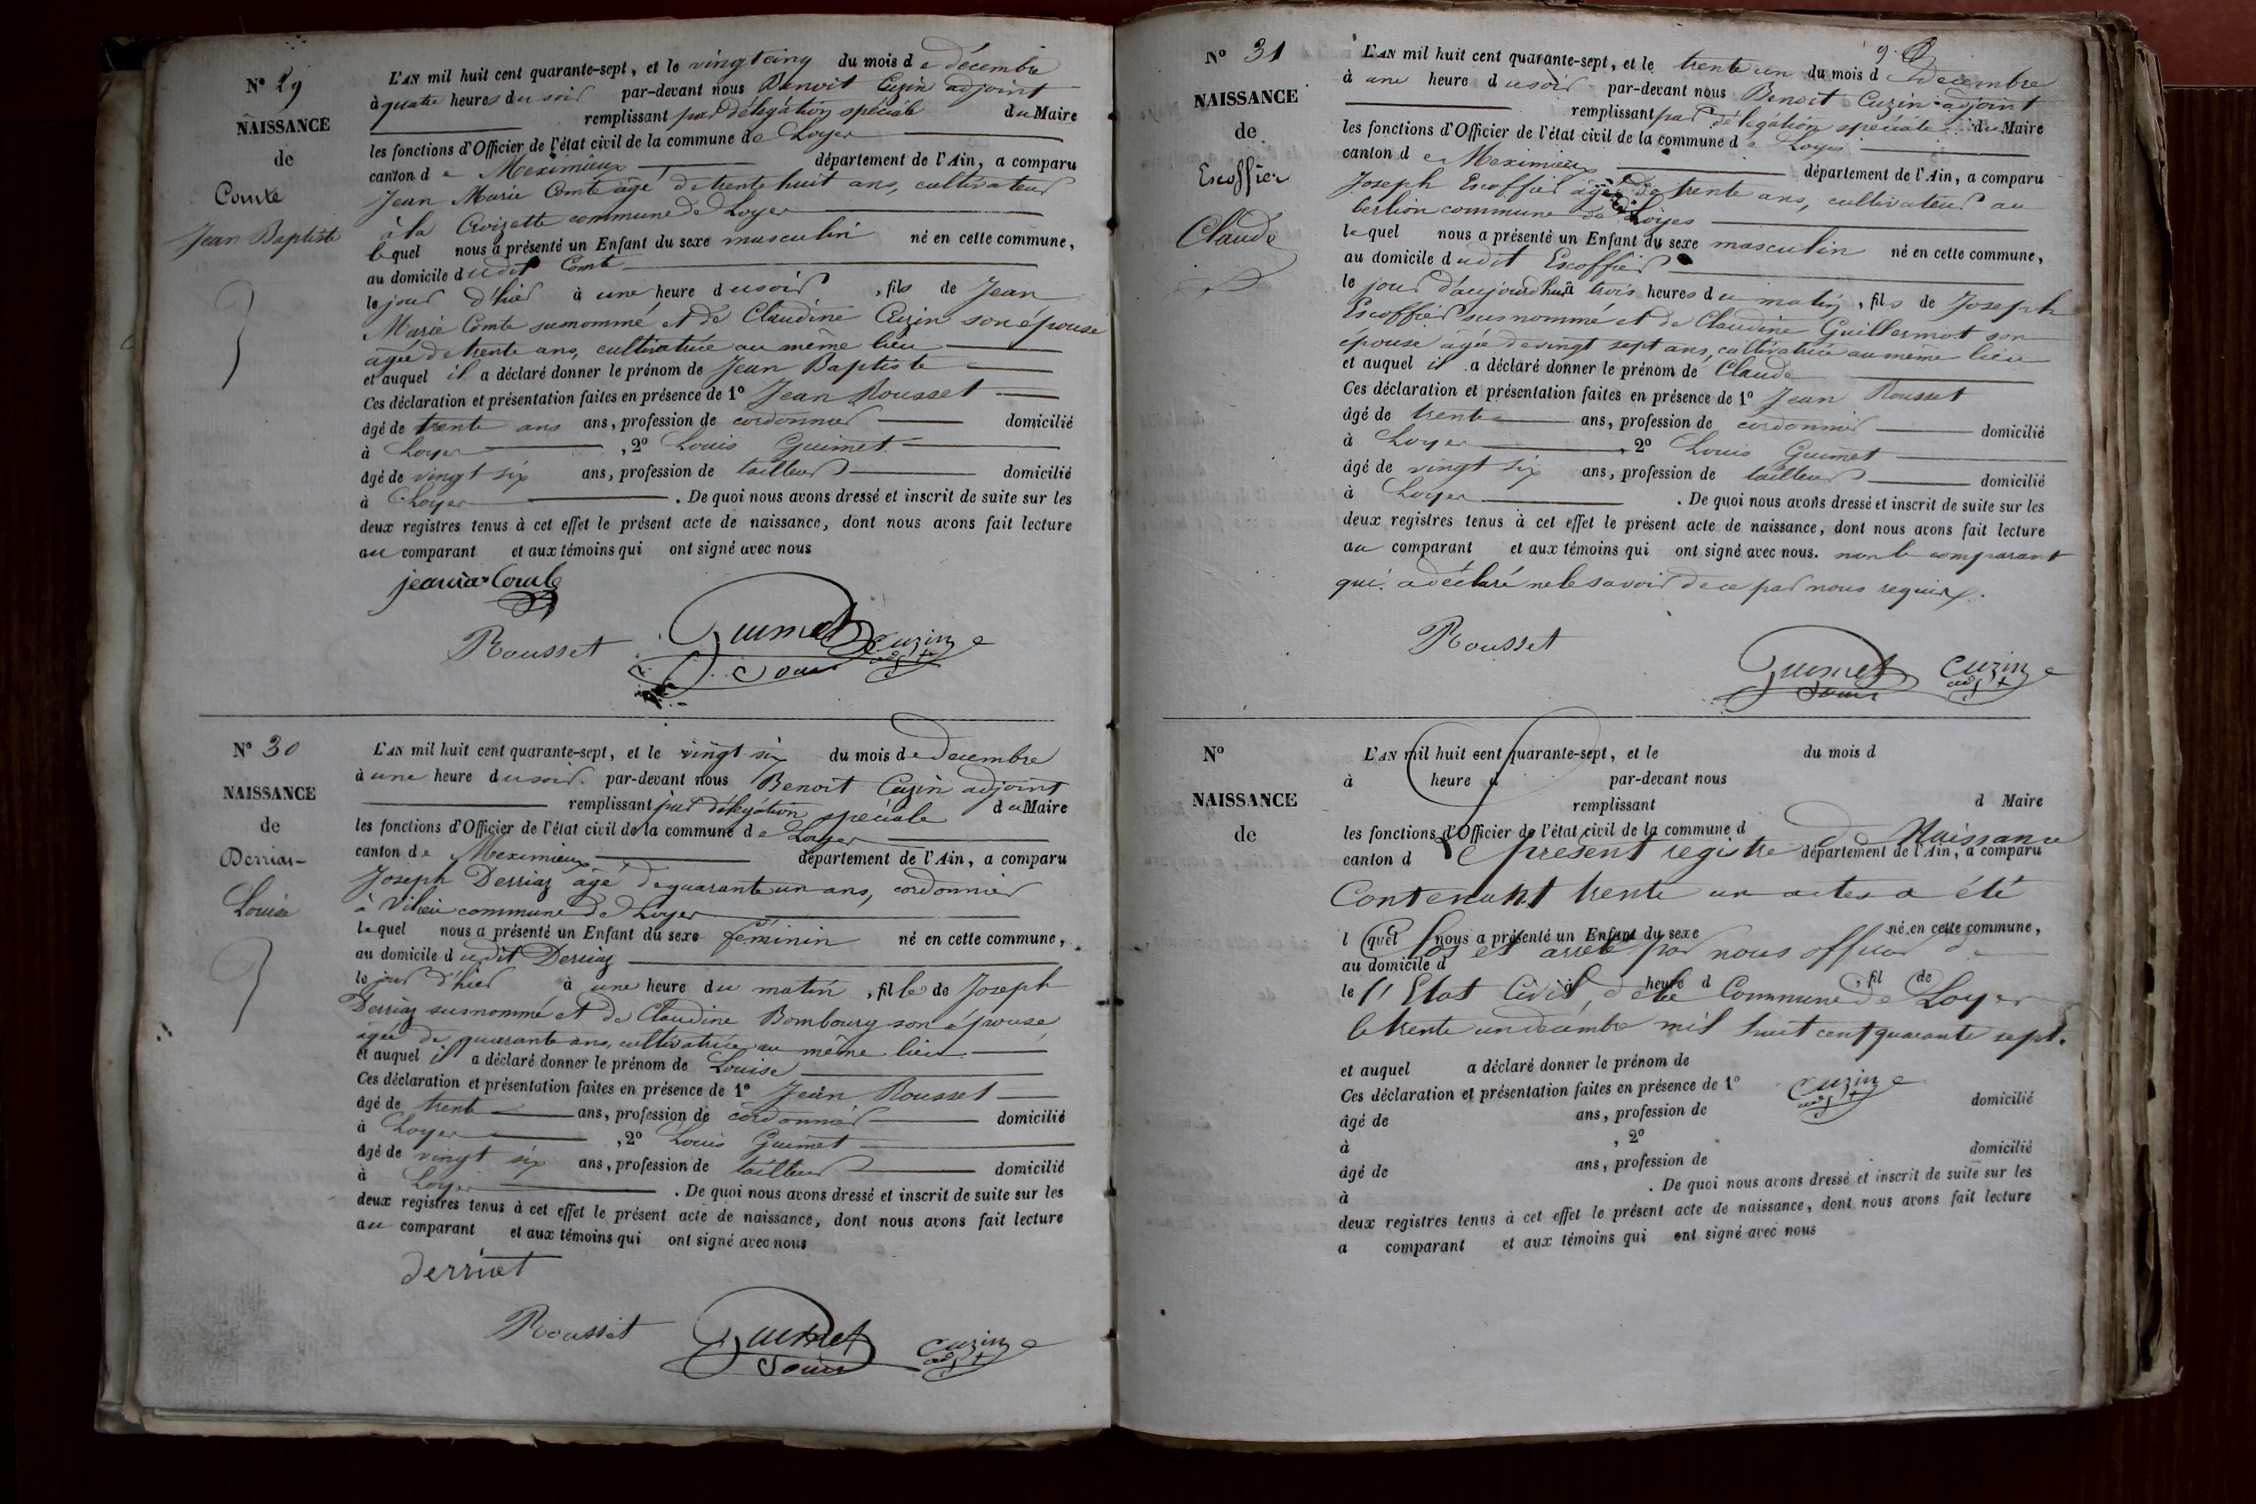 N° 29
NAISSANCE
de
Comte
Jean Baptiste
L'AN mil huit cent quarante-sept, et le vingt cinq du mois de décembre
à quatre heures du soir par-devant nous Benoit Cuzin adjoint
remplissant par délégation spéciale du Maire
les fonctions d'Officier de l'état civil de la commune de Loyes
canton de Meximieux département de l'Ain, a comparu
Jean Marie Comte âgé de trente huit ans, cultivateur
à la Croizette commune de Loyes
lequel nous a présenté un Enfant du sexe musculin né en cette commune,
au domicile dudit Comte
le jour d'hier à une heure du soir, fils de Jean
Marie Comte susnommé et de Claudine Cuzin son épouse
agée de trente ans, cultivatrice au même lieu
et auquel il a déclaré donner le prénom de Jean Baptiste
Ces déclaration et présentation faites en présence de 1° Jean Rousset
âgé de trente ans ans, profession de cordonnier domicilié
à Loyes, 2° Louis Guimet
âgé de vingt six ans, profession de tailleur domicilié
à Loyes. De quoi nous avons dressé et inscrit de suite sur les
deux registres tenus à cet effet le présent acte de naissance, dont nous avons fait lecture
au comparant et aux témoins qui ont signé avec nous
Rousset Guimet Louis Cuzin adjt
N° 30
NAISSANCE
de
Derriaz
Louise
L'AN mil huit cent quarante-sept, et le vingt six du mois de decembre
à une heure du soir par-devant nous Benoit Cuzin adjoint
remplissant par délégation spéciale du Maire
les fonctions d'Officier de l'état civil de la commune de Loyes
canton de Meximieux département de l'Ain, a comparu
Joseph Derriaz âgé de quarante un ans, cordonnier
à Vilieu commune de Loyes
lequel nous a présenté un Enfant du sexe féminin né en cette commune,
au domicile dudit Derriaz
le jour d'hier à une heure du matin, fille de Joseph
Derriaz susnommé et de Claudine Bombourg son épouse
agée de quarante ans, cultivatrice au même lieu
et auquel il a déclaré donner le prénom de Louise
Ces déclaration et présentation faites en présence de 1° Jean Rousset
âgé de trente ans, profession de cordonnier domicilié
à Loyes, 2° Louis Guimet
âgé de vingt six ans, profession de tailleur domicilié
à Loyes. De quoi nous avons dressé et inscrit de suite sur les
deux registres tenus à cet effet le présent acte de naissance, dont nous avons fait lecture
au comparant et aux témoins qui ont signé avec nous
derriat
Rousset Guimet Louis Cuzin adjt
N° 31
NAISSANCE
de
Escoffier
Claude
L'AN mil huit cent quarante-sept, et le trente un du mois de decembre
à une heure du soir par-devant nous Benoit Cuzin adjoint
remplissant par délégation spéciale du Maire
les fonctions d'Officier de l'état civil de la commune de Loyes
canton de Meximieux département de l'Ain, a comparu
Joseph Escoffier âgé de trente ans, cultivateur au
commune de Loyes
lequel nous a présenté un Enfant du sexe masculin né en cette commune,
au domicile dudit Escoffier
le jour d'aujourd'hui à trois heures du matin, fils de Joseph
Escoffier susnommé et de Claudine Guillermot son
épouse agée de vingt sept ans, cultivatrice au même lieu
et auquel il a déclaré donner le prénom de Claude
Ces déclaration et présentation faites en présence de 1° Jean Rousset
âgé de trente ans, profession de cordonnier domicilié
à Loyes, 2° Louis Guimet
âgé de vingt six ans, profession de tailleur domicilié
à Loyes. De quoi nous avons dressé et inscrit de suite sur les
deux registres tenus à cet effet le présent acte de naissance, dont nous avons fait lecture
au comparant et aux témoins qui ont signé avec nous. non le comparant
qui a déclaré ne le savoir de ce par nous requis.
Rousset
Guimet Louis Cuzin adjt
N°
NAISSANCE
de
L'AN mil huit cent quarante-sept, et le du mois d
à heure d par-devant nous
remplissant d Maire
les fonctions d'Officier de l'état civil de la commune d
Le présent registre de Naissance
canton d département de l'Ain, a comparu
Contenant trente un actes a été
l quel nous a présenté un Enfant du sexe né en cette commune,
Clos et arrêté par nous officier de
au domicile d
le à heure d, fil de
l'Etat Civil de la Commune de Loyes
le trente un décembre mil huit cent quarante sept.
et auquel a déclaré donner le prénom de
Ces déclaration et présentation faites en présence de 1°
Cuzin adjt
âgé de ans, profession de domicilié
à, 2°
âgé de ans, profession de domicilié
à. De quoi nous avons dressé et inscrit de suite sur les
deux registres tenus à cet effet le présent acte de naissance, dont nous avons fait lecture
a comparant et aux témoins qui ont signé avec nous